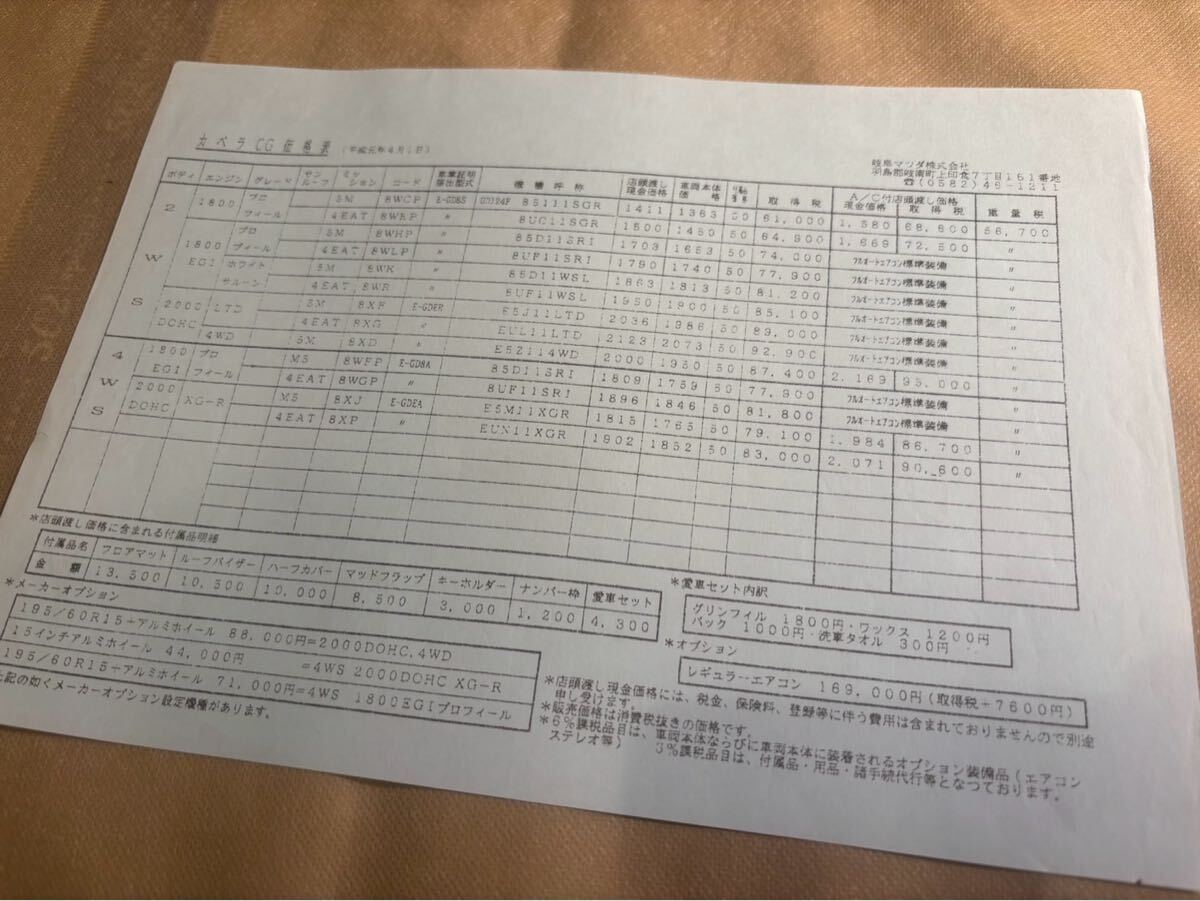 カペラCG価格表 (平成元年4月1日)
岐阜マツダ株式会社
羽島郡岐南町上印食7丁目161番地
☎(0582)46-1211
ボディ エンジン グレード サンルーフ ミッション コード 車車証明届出型式 機種呼称 店頭渡し現金価格 車両本体価格 取得税 A/C付店頭渡し価格 現金価格 取得税 重量税
2WS 1800 プロフィール 5M 8WCP E-GD8S GD124F 85111SGR 1411 1363 50 61,000 1,580 68,600 56,700
4EAT 8WEP 〃 8UC11SGR 1500 1450 50 64,900 1,669 72,500 〃
1800 EGI プロフィール 5M 8WHP 〃 85D11SRI 1703 1653 50 74,000 フルオートエアコン標準装備 〃
4EAT 8WLP 〃 8UF11SRI 1790 1740 50 77,900 フルオートエアコン標準装備 〃
ホワイトサルーン 5M 8WK 〃 85D11WSL 1863 1813 50 81,200 フルオートエアコン標準装備 〃
4EAT 8WR 〃 8UF11WSL 1950 1900 50 85,100 フルオートエアコン標準装備 〃
2000 DOHC LTD 5M 8XF E-GDER E5J11LTD 2036 1986 50 89,000 フルオートエアコン標準装備 〃
4EAT 8XG 〃 EUL11LTD 2123 2073 50 92,900 フルオートエアコン標準装備 〃
4WD 5M 8XD 〃 E5Z114WD 2000 1950 50 87,400 2,169 95,000 〃
4WS 1800 EGI プロフィール M5 8WFP E-GD8A 85D11SRI 1809 1759 50 77,900 フルオートエアコン標準装備 〃
4EAT 8WGP 〃 8UF11SRI 1896 1846 50 81,800 フルオートエアコン標準装備 〃
2000 DOHC XG-R M5 8XJ E-GDEA E5M11XGR 1815 1765 50 79,100 1,984 86,700 〃
4EAT 8XP 〃 EUN11XGR 1902 1852 50 83,000 2,071 90,600 〃
*店頭渡し価格に含まれる付属品明細
付属品名 フロアマット ルーフバイザー ハーフカバー マッドフラップ キーホルダー ナンバー枠 愛車セット
金額 13,500 10,500 10,000 8,500 3,000 1,200 4,300
*メーカーオプション
195/60R15+アルミホイール 88,000円=2000DOHC,4WD
15インチアルミホイール 44,000円 =4WS 2000DOHC XG-R
195/60R15+アルミホイール 71,000円=4WS 1800EGIプロフィール
上記の如くメーカーオプション設定機種があります。
*愛車セット内訳
グリンフィル 1800円・ワックス 1200円
バック 1000円・洗車タオル 300円
*オプション
レギュラーエアコン 169,000円(取得税+7600円)
*店頭渡し現金価格には、税金、保険料、登録等に伴う費用は含まれておりませんので別途
申し受けます。
*販売価格は消費税抜きの価格です。
*6%課税品目は、車両本体ならびに車両本体に装着されるオプション装備品(エアコン
ステレオ等) 3%課税品目は、付属品・用品・諸手続代行等となつております。